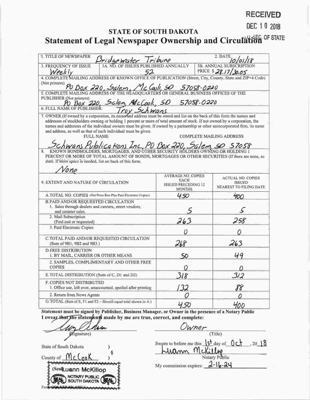 RECEIVED
DEC 19 2018
SEC. OF STATE
STATE OF SOUTH DAKOTA
Statement of Legal Newspaper Ownership and Circulation
1. TITLE OF NEWSPAPER
Bridgewater Tribune
2. DATE
10/01/18
3. FREQUENCY OF ISSUE
Weekly
3A. NO. OF ISSUES PUBLISHED ANNUALLY
52
3B. ANNUAL SUBSCRIPTION
PRICE $ 28.17/30.05
4. COMPLETE MAILING ADDRESS OF KNOWN OFFICE OF PUBLICATION (Street, City, County, State and ZIP+4 Code)
(Not printers)
PO Box 220, Salem, McCook, SD 57058-0220
5. COMPLETE MAILING ADDRESS OF THE HEADQUARTERS OF GENERAL BUSINESS OFFICES OF THE
PUBLISHER (Not printers)
PO Box 220, Salem, McCook, SD 57058-0220
6. FULL NAME OF PUBLISHER
Troy Schwans
7. OWNER (If owned by a corporation, its name and address must be stated and also list on the back of this form the names and
addresses of stockholders owning or holding 1 percent or more of total amount of stock. If not owned by a corporation, the
names and addresses of the individual owners must be given. If owned by a partnership or other unincorporated firm, its name
and address, as well as that of each individual must be given.
FULL NAME
COMPLETE MAILING ADDRESS
Schwans Publications Inc, PO Box 220, Salem, SD 57058
8. KNOWN BONDHOLDERS, MORTGAGEES, AND OTHER SECURITY HOLDERS OWNING OR HOLDING 1
PERCENT OR MORE OF TOTAL AMOUNT OF BONDS, MORTGAGES OR OTHER SECURITIES (If there are none, so
state. If more space is needed, list on back of this form.
None
9. EXTENT AND NATURE OF CIRCULATION
AVERAGE NO. COPIES
EACH
ISSUED PRECEDING 12
MONTHS
ACTUAL NO. COPIES
ISSUED
NEAREST TO FILING DATE
A. TOTAL NO. COPIES
450
400
B. PAID AND/OR REQUESTED CIRCULATION
1. Sales through dealers and carriers, street vendors,
and counter sales.
5
5
2. Mail Subscription
(Paid and or requested)
263
258
3. Paid Electronic Copies
0
0
C. TOTAL PAID AND/OR REQUESTED CIRCULATION
(Sum of 9B1, 9B2 and 9B3.)
268
263
D. FREE DISTRIBUTION
1. BY MAIL, CARRIER OR OTHER MEANS
50
49
2. SAMPLES, COMPLIMENTARY AND OTHER FREE
COPIES
0
0
E. TOTAL DISTRIBUTION (Sum of C, D1 and D2)
318
312
F. COPIES NOT DISTRIBUTED
1. Office use, left over, unaccounted, spoiled after printing
132
88
2. Return from News Agents
0
0
G. TOTAL (Sum of E, F1 and F2 – Should equal total shown in A.)
450
400
Statement must be signed by Publisher, Business Manager, or Owner in the presence of a Notary Public
I swear that the statements made by me are true, correct, and complete:
(Signature)
Owner
(Title)
State of South Dakota )
Sworn to before me this 1st day of Oct , 2018
County of McCook )
LuAnn McKillop
Notary Public
LuAnn McKillop
NOTARY PUBLIC
SOUTH DAKOTA
SEAL
My commission expires: 2-16-24